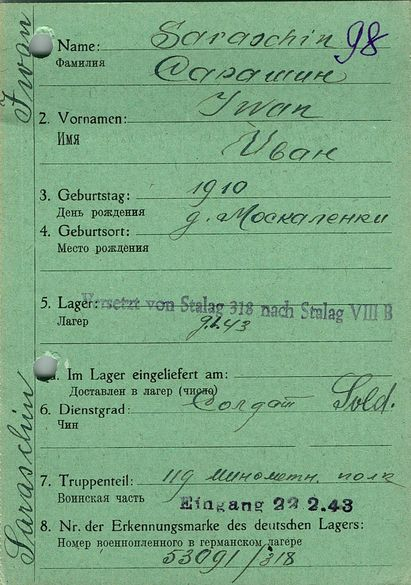 Iwan
Saraschin
1. Name: Saraschin 98
Фамилия Сарашин
2. Vornamen: Iwan
Имя Иван
3. Geburtstag: 1910
День рождения
4. Geburtsort: д. Москаленки
Место рождения
5. Lager: Versetzt von Stalag 318 nach Stalag VIII B
Лагер 9.2.43
a. Im Lager eingeliefert am:
Доставлен в лагер (число)
6. Dienstgrad: Солдат Sold.
Чин
7. Truppenteil: 119 минометн. полк
Воинская часть Eingang 22 2.43
8. Nr. der Erkennungsmarke des deutschen Lagers:
Номер военнопленного в германском лагере
53091/318